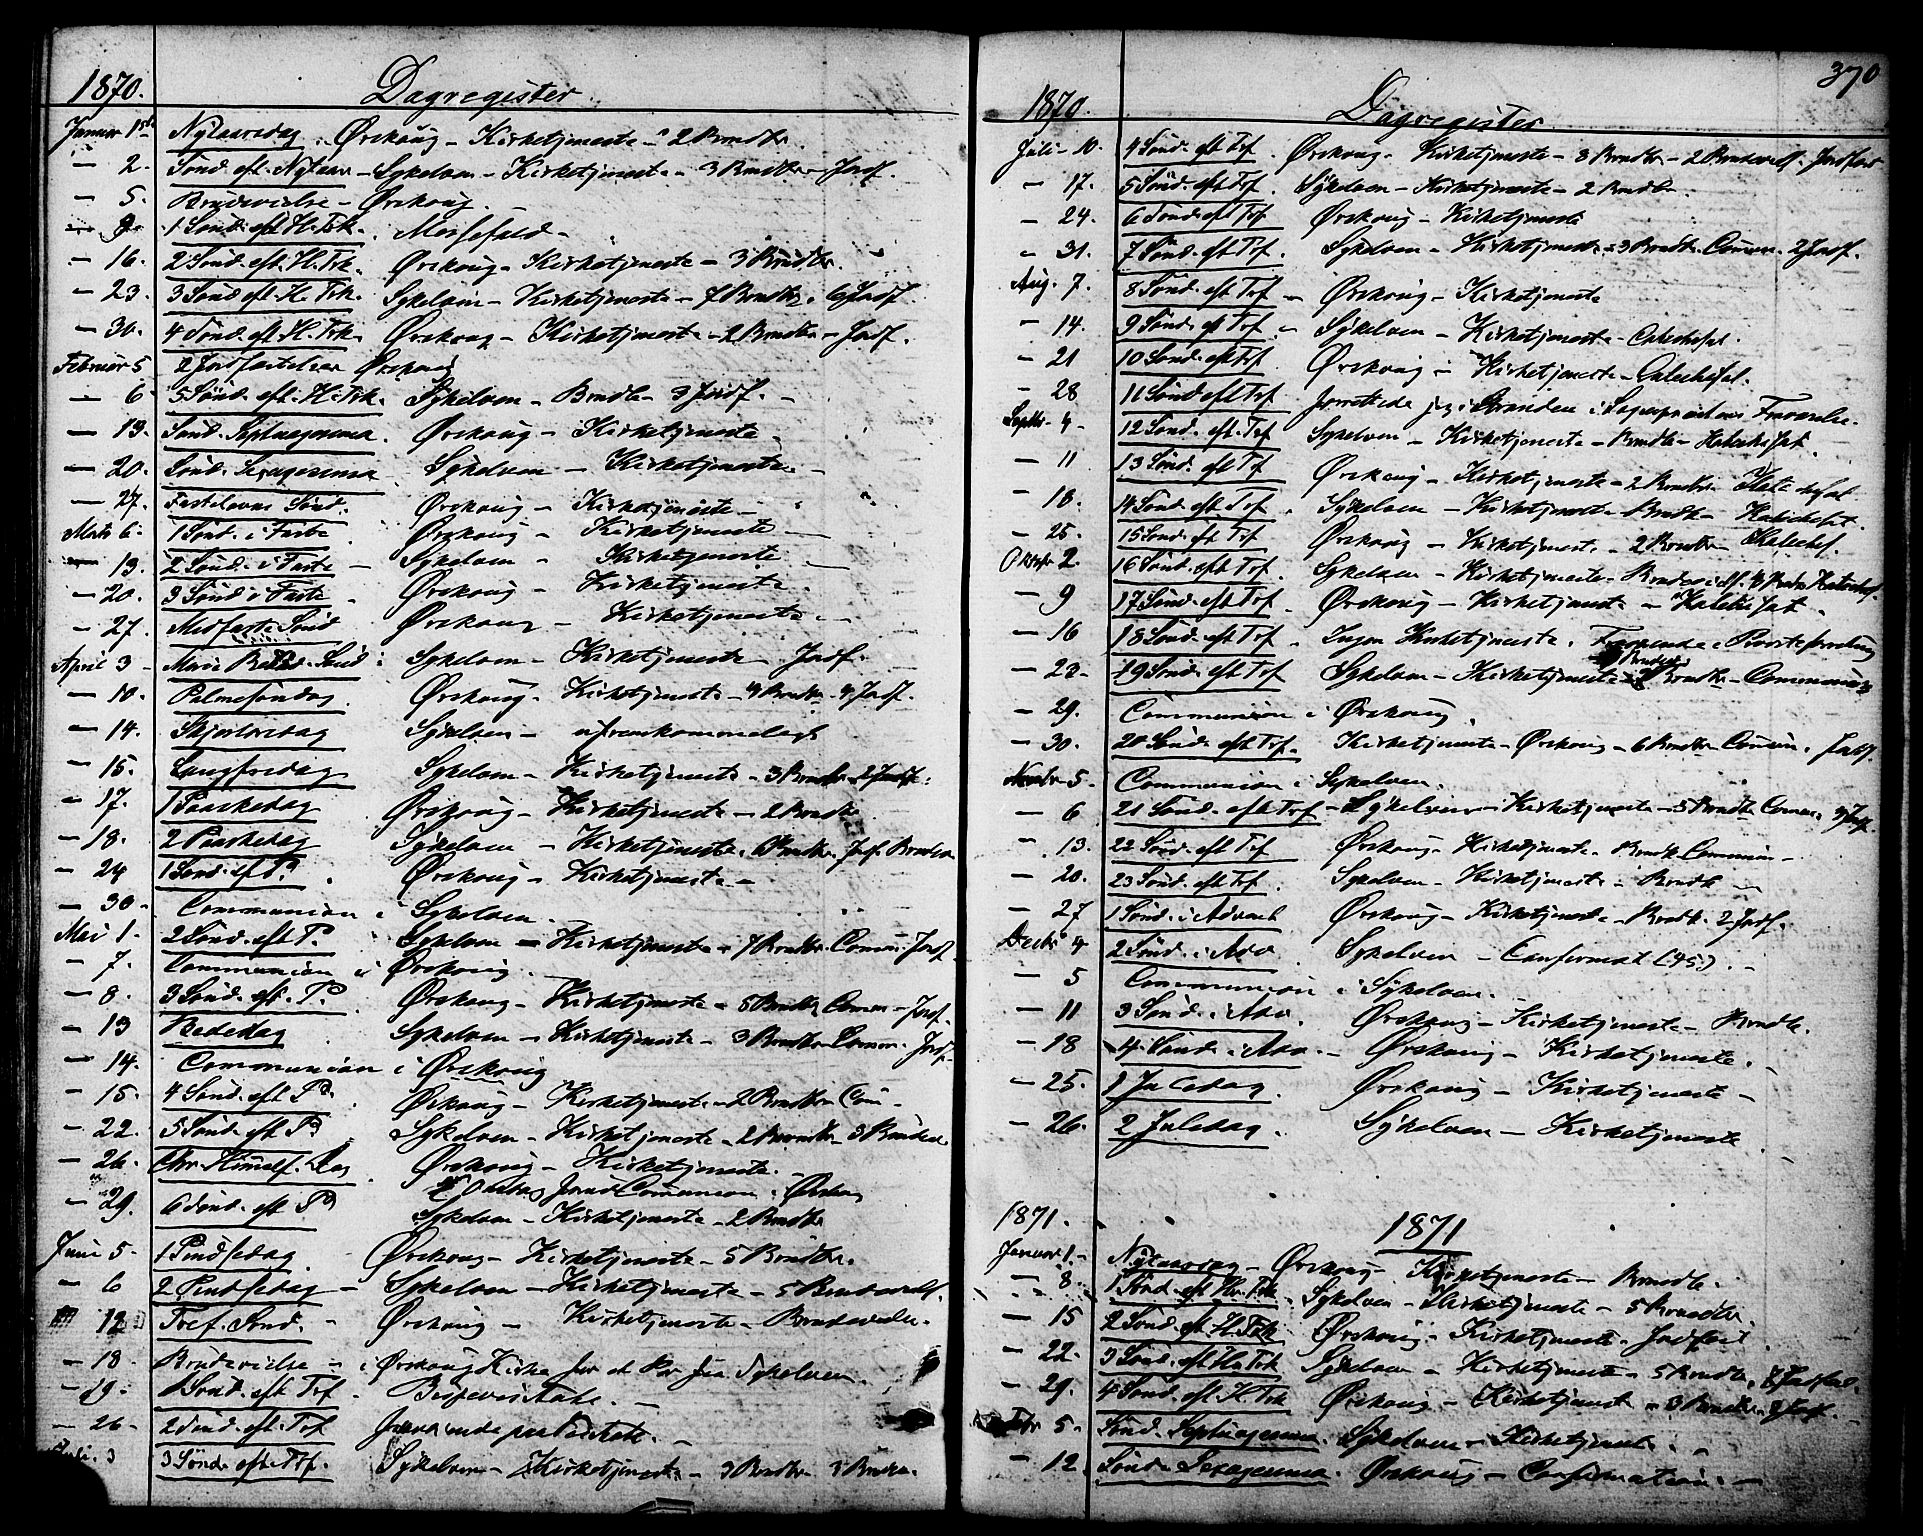 1870. Dagregister
Januar 1ste Nytaarsdag. Ørskoug - Kirketjeneste - 2 Barndb.
- 2. Sönd. eft. Nytaar - Sykelven - Kirketjeneste - 3 Barndb. - Jordf.
- 5. Brudevielse - Ørskoug.
- 9. 1 Sönd. eft. H. 3k. Messefald -
- 16. 2 Sönd. eft. H. 3k. Ørskoug - Kirketjeneste - 3 Barndb.
- 23. 3 Sönd. eft. H. 3k. Sykelven - Kirketjeneste - 7 Barndb. 6 Jordf.
- 30. 4 Sönd. eft. H. 3k. Ørskoug - Kirketjeneste - 2 Barndb. - Jordf.
Februar 5 2 Jordfæstelser Ørskoug
- 6. 5 Sönd. eft. H. 3k. Sykelven - Barndb. 3 Jordf. -
- 13. Sönd. Septuagesima. Ørskoug - Kirketjeneste.
- 20. Sönd. Sexagesima Sykelven - Kirketjeneste -
- 27. Fastelavns Sönd. Ørskoug - Kirketjeneste -
Marts 6. 1 Sönd. i Faste Ørskoug - Kirketjeneste
- 13. 2 Sönd. i Faste - Sykelven - Kirketjeneste
- 20. 3 Sönd. i Faste - Ørskoug - Kirketjeneste.
- 27. Midfaste Sönd Ørskoug - Kirketjeneste -
April 3 - Mariæ Beb. Sönd. Sykelven - Kirketjeneste - Jordf.
- 10. Palmesöndag Ørskoug - Kirketjeneste - 4 Barndb. - 4 Jordf.
- 14. Skjærtorsdag Sykelven - ufremkommeligt
- 15. Langfredag Sykelven - Kirketjeneste - 3 Barndb. 2 Jordf.
- 17. 1 Paaskedag Ørskoug - Kirketjeneste - 2 Barndb.
- 18. 2 Paaskedag Sykelven - Kirketjeneste. Barndb. Jordf. Brudev.
- 24 1 Sönd. eft P. Ørskoug - Kirketjeneste -
- 30. Communion i Sykelven.
Mai 1. 2 Sönd. eft P. Sykelven - Kirketjeneste - 7 Barndb. Comun. Jordf.
- 7. Communion i Ørskoug.
- 8. 3 Sönd. eft. P. Ørskoug - Kirketjeneste - 5 Barndb. Comun - Jordf.
- 13 Bededag Sykelven - Kirketjeneste - 3 Barndb. Comun. Jordf.
- 14. Communion i Ørskoug
- 15. 4 Sönd. eft P. Ørskoug - Kirketjeneste - 2 Barndb. Com -
- 22. 5 Sönd. eft P. Sykelven - Kirketjeneste - 2 Barndb. 3 Brudev.
- 26. Chr. Himmelf. Dag Ørskoug - Kirketjeneste. -
Comunion i Ørskoug
- 29. 6 Sönd. eft P. Sykelven - Kirketjeneste - 2 Barndb
Juni 5. 1 Pindsedag Ørskoug - Kirketjeneste - 5 Barndb.
- 6 2 Pindsedag - Sykelven - Kirketjeneste - 5 Brudevielser.
12 Tref. Sönd. - Ørskoug - Kirketjeneste - Brudevielse.
- 18. Brudevielse - i Ørskoug Kirke for et Par fra Sykelven.
- 19. 1 Sönd. eft. Tref - Bispevisitats. -
- 26 - 2 Sönd. eft. Tref Fraværende paa
Juli. 3 3 Sönd. eft. Tref. Sykelven - Kirketjeneste - 3 Barndb. 3 Brudev.
370
1870. Dagregister
Juli - 10. 4 Sönd. eft Tref. Ørskoug - Kirketjeneste - 3 Barndb - 2 Brudevielser. Jordfæst
- 17. 5 Sönd. eft Tref. Sykelven - Kirketjeneste - 2 Barndb.
- 24. 6 Sönd. eft Tref. Ørskoug - Kirketjeneste
- 31. 7 Sönd. eft Tref. Sykelven - Kirketjeneste - 3 Barndb. Comun. 2 Jordf.
Aug. 7. 8 Sönd. eft Tref - Ørskoug - Kirketjeneste
- 14. 9 Sönd. eft Tref - Sykelven - Kirketjeneste - Catechesat.
- 21 10 Sönd. eft Tref. Ørskoug - Kirketjeneste - Catechesat.
- 28 11 Sönd. eft Tref forrettede jeg i Stranden i Sognepræstens Fraværelse.
Septbr. 4 12 Sönd. eft. Tref Sykelven - Kirketjeneste - Barndb - Katechesat.
- 11 13 Sönd. eft Tref Ørskoug - Kirketjeneste - 2 Barndb - Katechesat
- 18 14 Sönd. eft Tref. Sykelven - Kirketjeneste - Barndb - Katechesat.
- 25 15 Sönd. eft Tref Ørskoug - Kirketjeneste - 2 Barndb - Katechesat.
Oktobr 2. 16 Sönd. eft Tref. Sykelven - Kirketjeneste - Brudevielse. 4 Barndb Katechesat.
- 9 17 Sönd. eft Tref. Ørskoug - Kirketjeneste - Katechesat.
- 16 18 Sönd. eft Tref. Ingen Kirketjeneste. Fraværende i
- 23. 19 Sönd. eft Tref Sykelven - Kirketjeneste - Barndb - Communion
- 29. Communion i Ørskoug.
- 30. 20 Sönd. eft Tref. Kirketjeneste - Ørskoug - 6 Barndb - Comun. Jordf.
Novbr 5. Communion i Sykelven.
- 6 21 Sönd. eft Tref - Sykelven - Kirketjeneste - 5 Barndb Comun. 4 Jordf
- 13. 22 Sönd. eft Tref Ørskoug - Kirketjeneste. Barndb Commun -
- 20. 23 Sönd. eft Tref. Sykelven - Kirketjeneste - Barndb -
- 27 1 Sönd. i Advent Ørskoug - Kirketjeneste - Barndb. 2 Jordf.
Decbr 4. 2 Sönd. i Adv Sykelven - Confirmat (45). -
- 5 Communion i Sykelven.
- 11 3 Sönd. i Adv. Ørskoug - Kirketjeneste - Barndb.
- 18 4 Sönd. i Adv. - Ørskoug - Kirketjeneste.
- 25. 1 Juledag. Ørskoug - Kirketjeneste -
- 26. 2 Juledag. Sykelven - Kirketjeneste
1871. 1871
Januar 1 - Nytaarsdag - Ørskoug - Kirketjeneste - Barndb.
- 8. 1 Sönd. eft H. 3k. Sykelven - Kirketjeneste - 5 Barndb.
- 15 2 Sönd. eft H. 3k. Ørskoug - Kirketjeneste - Jordfæst
- 22. 3 Sönd. eft H. 3k Sykelven - Kirketjeneste - 5 Barndb. Jordfæst.
- 29. 4 Sönd. eft H. 3k Ørskoug - Kirketjeneste - 3 Barndb. 2 Jordf.
Febr 5. Sönd. Septuagesima. Sykelven - Kirketjeneste.
- 12. Sönd. Sexagesima. Ørskoug - Confirmation. -